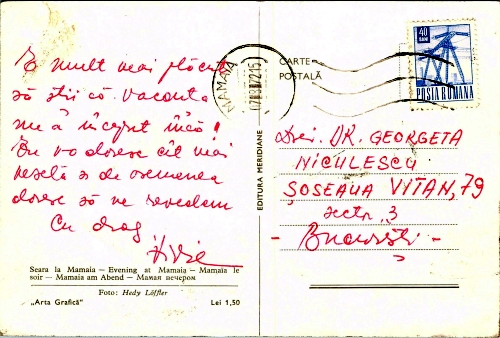 E mult mai plăcut
să știi că vacanța
nu a început încă!
Eu v-o doresc cît mai
veselă și de asemenea
doresc să ne revedem
Cu drag
Seara la Mamaia — Evening at Mamaia — Mamaia le
soir — Mamaia am Abend — Мамая вечером
Foto: Hedy Löffler
„Arta Grafică”
Lei 1,50
EDITURA MERIDIANE
MAMAIA
CARTE
POSTALĂ
40
BANI
POSTA ROMANA
DR. GEORGETA
NICULESCU
ȘOSEAUA VITAN, 79
sectr. 3
- București -